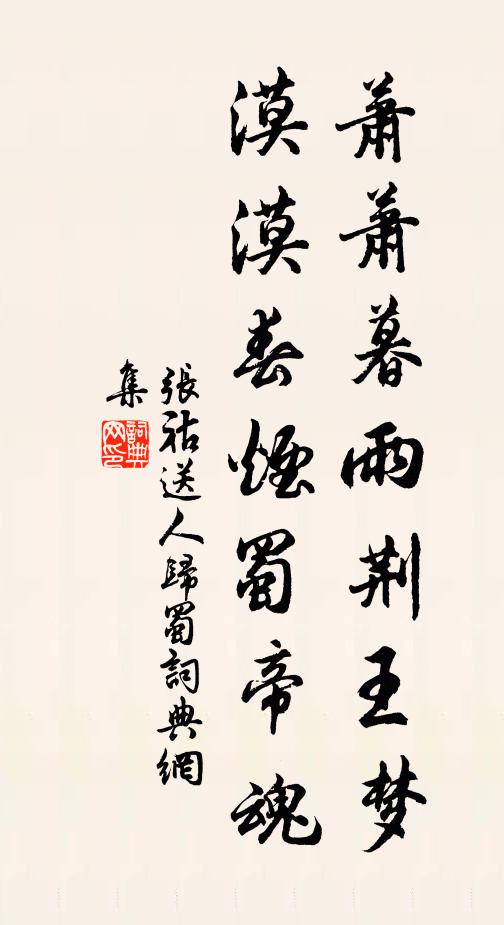 萧萧暮雨荆王梦
漠漠春煙蜀帝魂
張祜送人歸蜀詞典網
集
詞典
网印